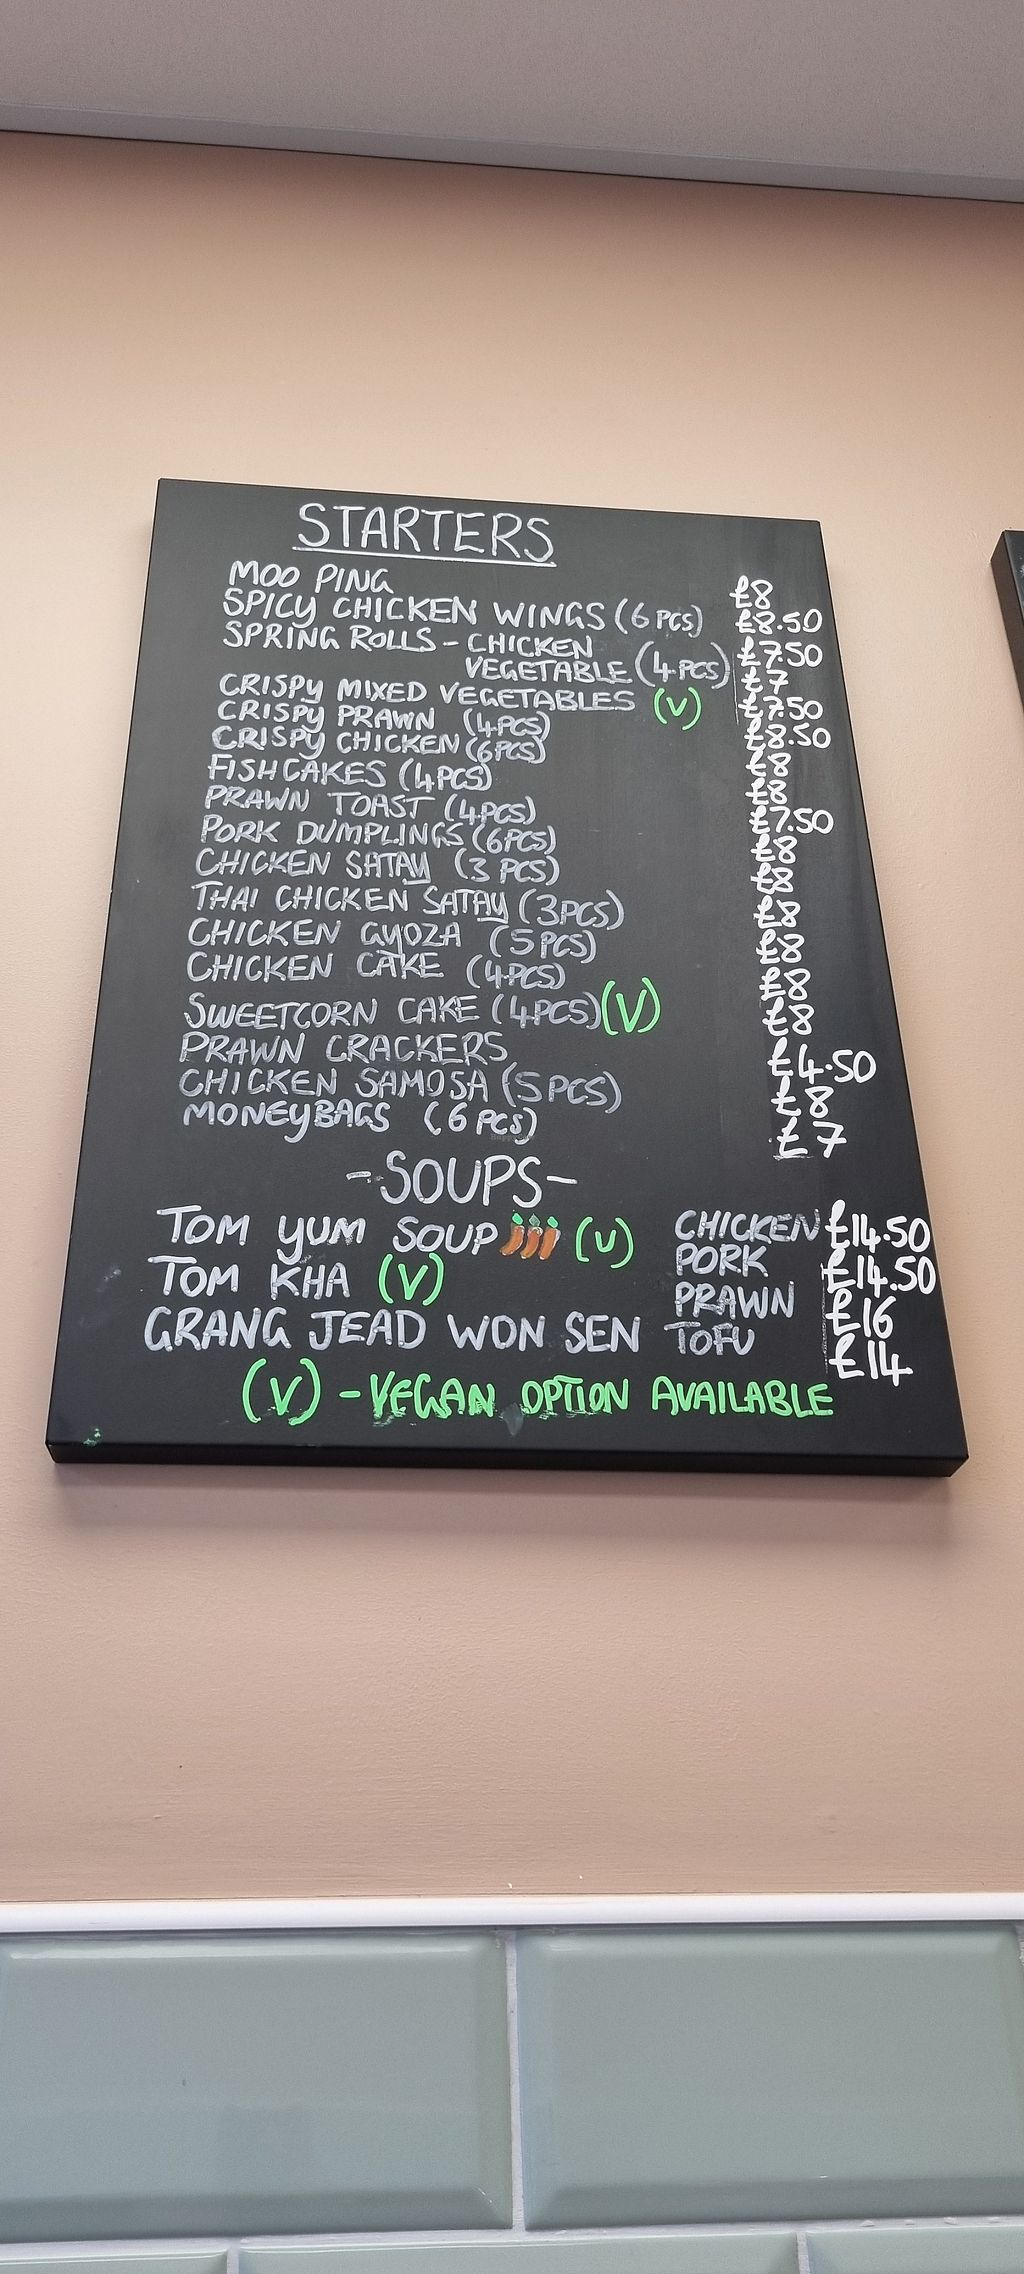 STARTERS
MOO PING £8
SPICY CHICKEN WINGS (6 PCS) £8.50
SPRING ROLLS - CHICKEN £7.50
VEGETABLE (4 PCS) £7
CRISPY MIXED VEGETABLES (V) £7.50
CRISPY PRAWN (4PCS) £8.50
CRISPY CHICKEN (6PCS) £8
FISHCAKES (4PCS) £8
PRAWN TOAST (4PCS) £7.50
PORK DUMPLINGS (6PCS) £8
CHICKEN SATAY (3 PCS) £8
THAI CHICKEN SATAY (3PCS) £8
CHICKEN GYOZA (5PCS) £8
CHICKEN CAKE (4PCS) £8
SWEETCORN CAKE (4PCS) (V) £8
PRAWN CRACKERS £4.50
CHICKEN SAMOSA (5PCS) £8
MONEYBAGS (6PCS) £7
-SOUPS-
TOM YUM SOUP (V) CHICKEN £14.50
TOM KHA (V) PORK £14.50
PRAWN £16
GRANG JEAD WON SEN TOFU £14
(V) - VEGAN OPTION AVAILABLE